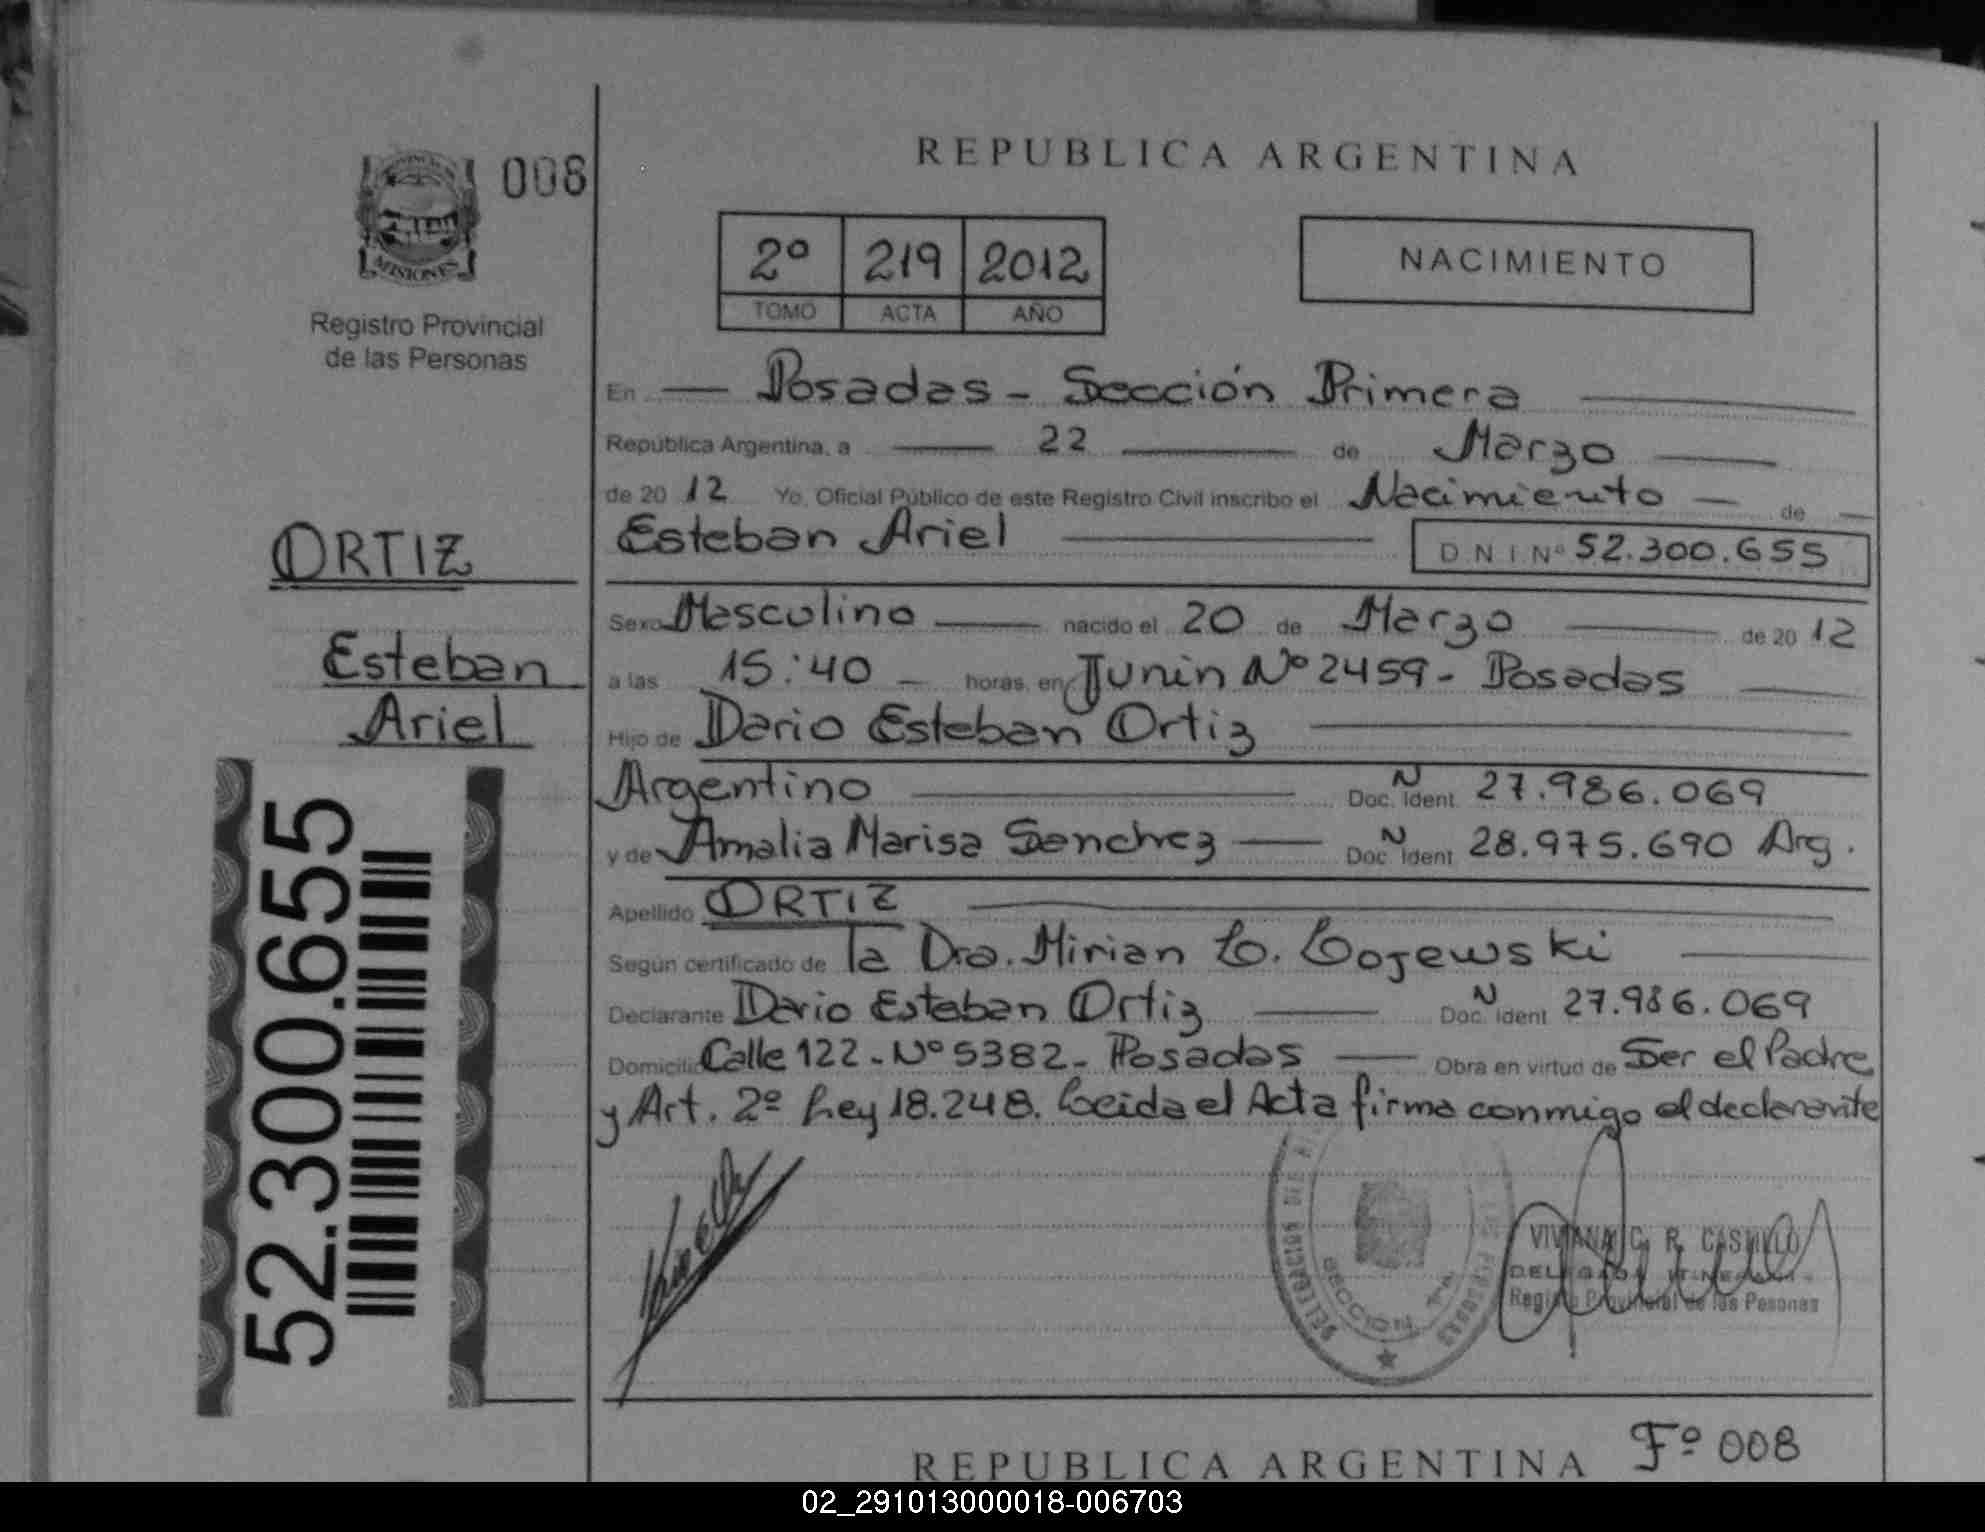 008
REPUBLICA ARGENTINA
2º 219 2012
TOMO ACTA AÑO
NACIMIENTO
MISIONES
Registro Provincial
de las Personas
En Posadas - Sección Primera
República Argentina, a 22 de Marzo
de 2012 Yo, Oficial Público de este Registro Civil inscribo el Nacimiento de
Esteban Ariel D.N.I. Nº 52.300.655
ORTIZ
Esteban
Ariel
Sexo Masculino nacido el 20 de Marzo de 2012
a las 15:40 horas, en Junin Nº 2459 - Posadas
Hijo de Dario Esteban Ortiz
Argentino Doc. Ident. N 27.986.069
y de Amalia Marisa Sanchez Doc. Ident. N 28.975.690 Arg.
Apellido ORTIZ
Según certificado de la Dra. Mirian L. Lojewski
Declarante Dario Esteban Ortiz Doc. Ident. N 27.986.069
Domicilio Calle 122 - Nº 5382 - Posadas Obra en virtud de Ser el Padre
y Art. 2º Ley 18.248. Leida el Acta firma conmigo el declarante
52.300.655
SECCION 1ª
VIVIANA C. R. CASTILLO
Registro Provincial de las Pesonas
REPUBLICA ARGENTINA Fº 008
02_291013000018-006703